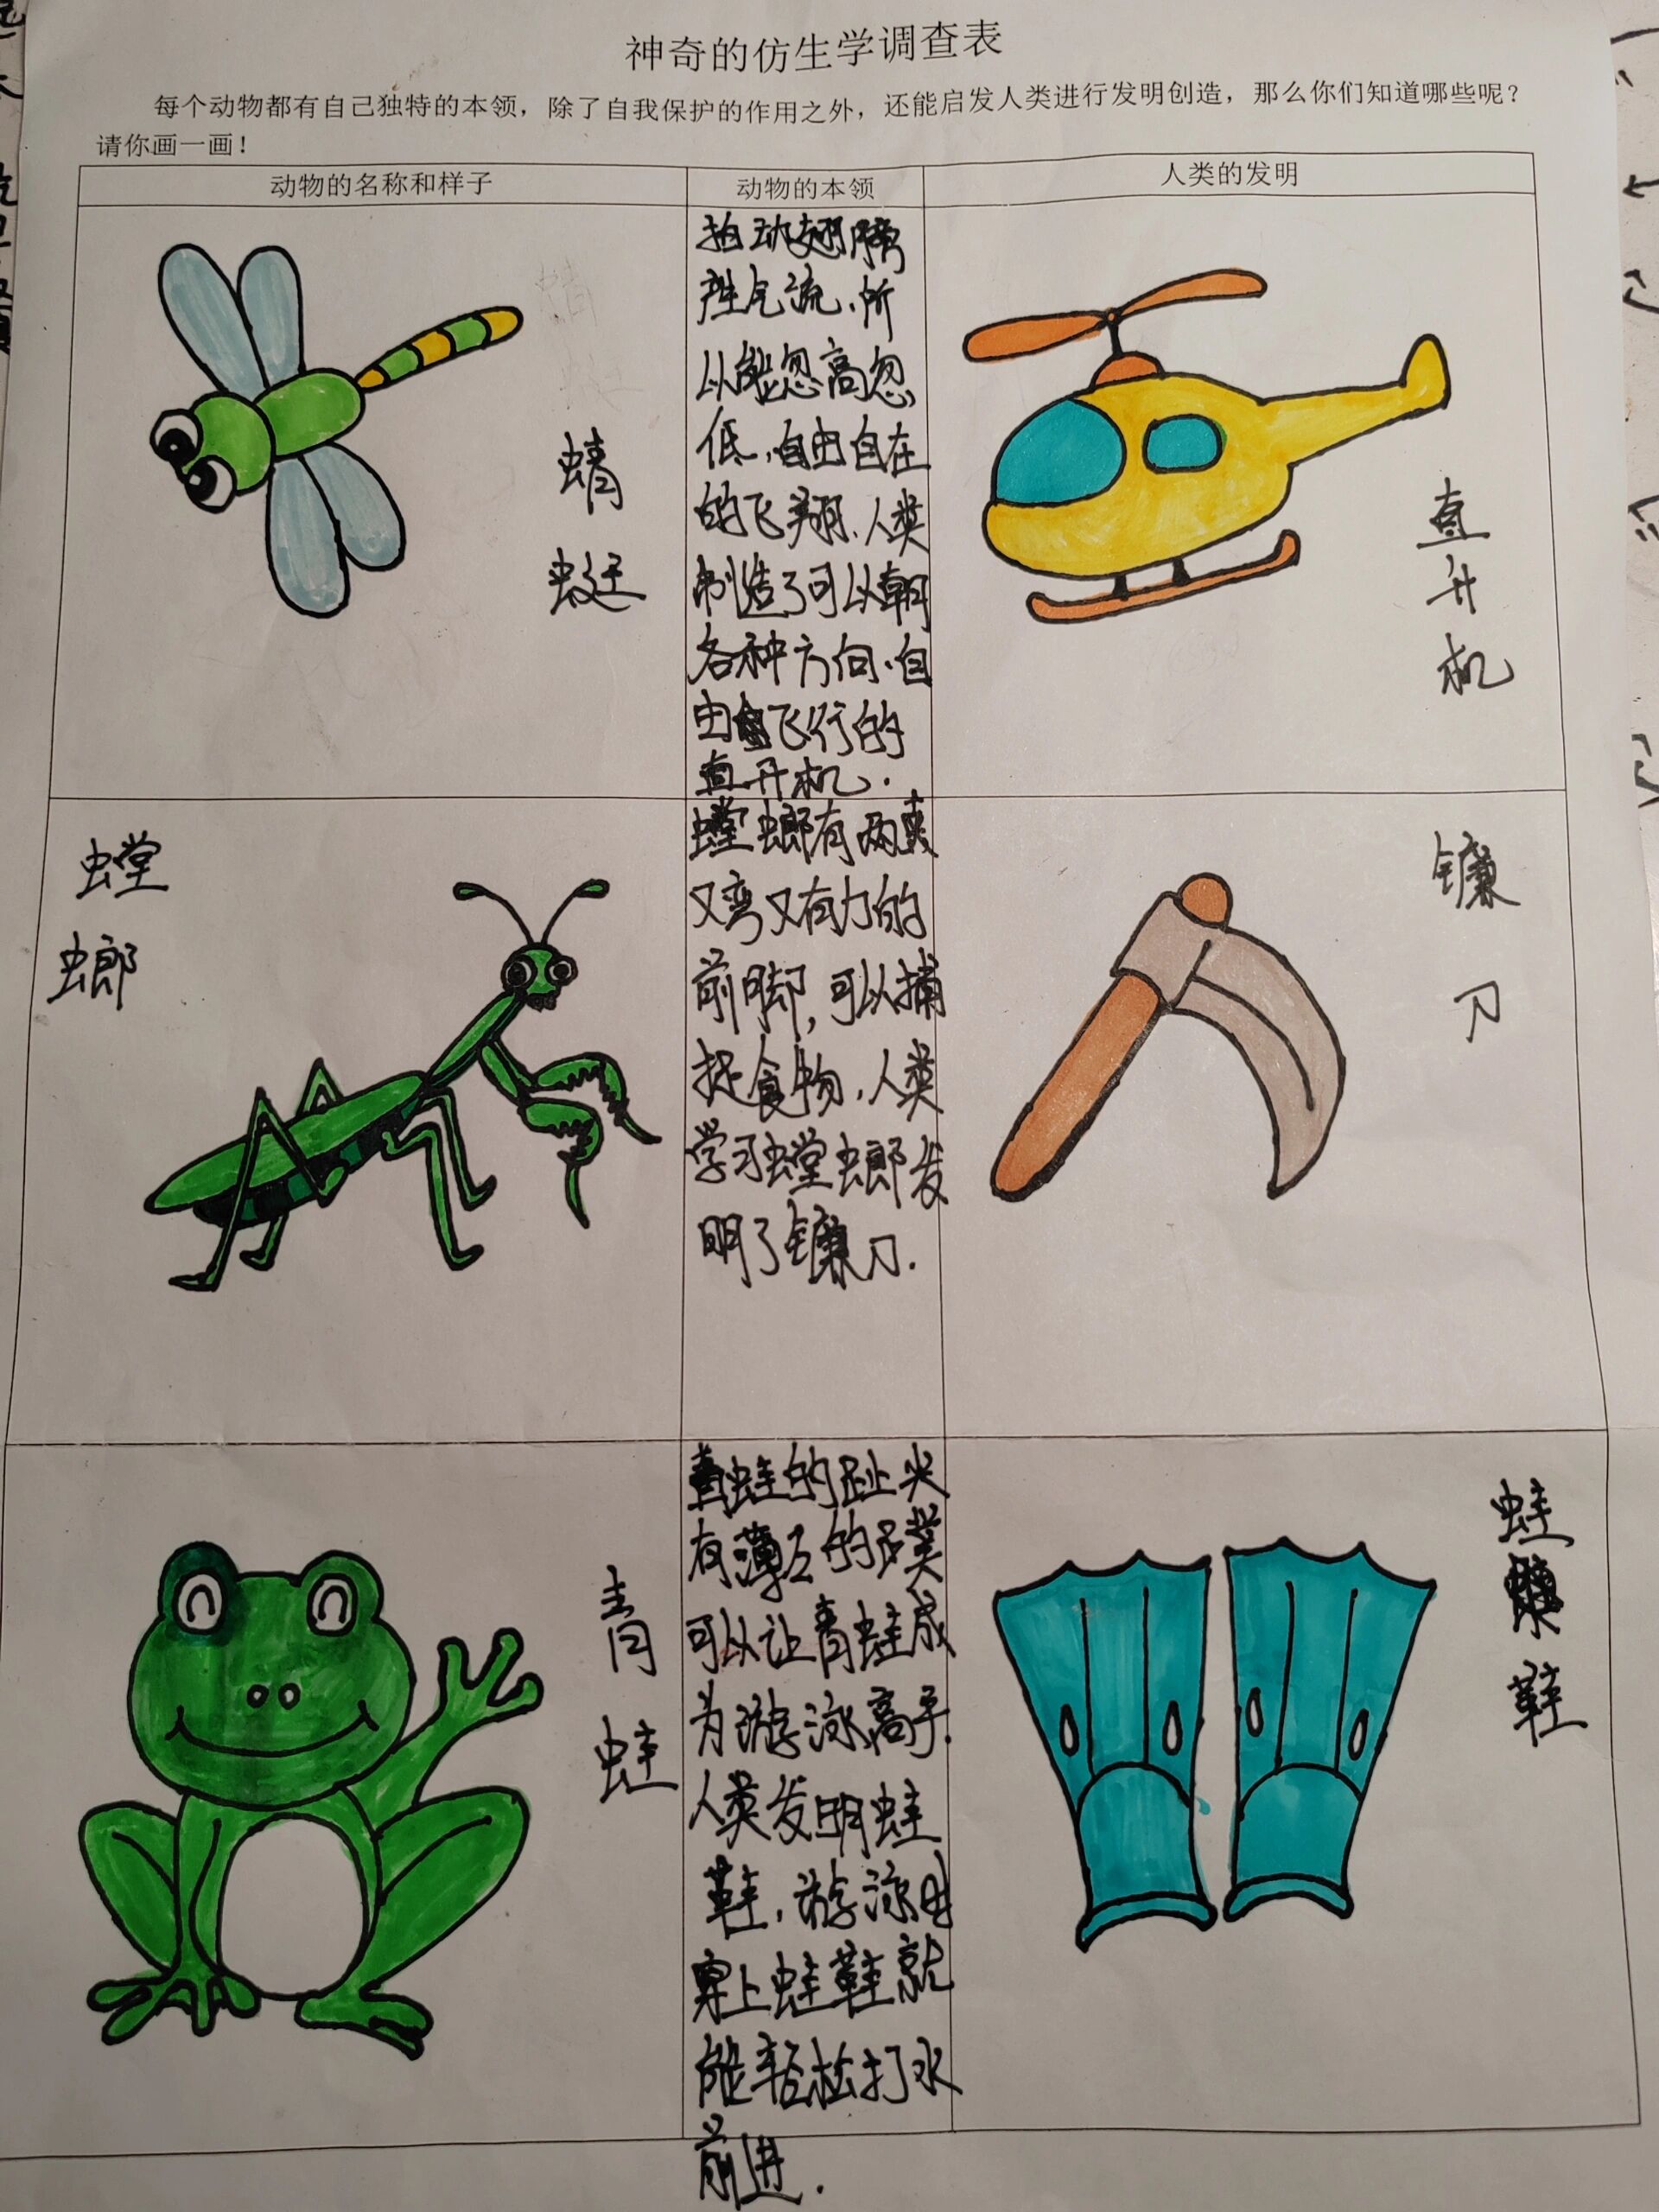 神奇的仿生学调查表
每个动物都有自己独特的本领，除了自我保护的作用之外，还能启发人类进行发明创造，那么你们知道哪些呢？
请你画一画！
动物的名称和样子
动物的本领
人类的发明
蜻
蜓
拍动翅膀
产生气流、所
以能忽高忽
低，自由自在
的飞翔、人类
制造了可以朝
各种方向、自
由飞行的
直升机．
直
升
机
螳
螂
螳螂有两
又弯又有力的
前脚，可以捕
捉食物，人类
学习螳螂发
明了镰刀．
镰
刀
青
蛙
青蛙的趾尖
有薄的蹼
可以让青蛙成
为游泳高手．
人类发明蛙
鞋，游泳
穿上蛙鞋就
能轻松打水
前进．
蛙
鞋